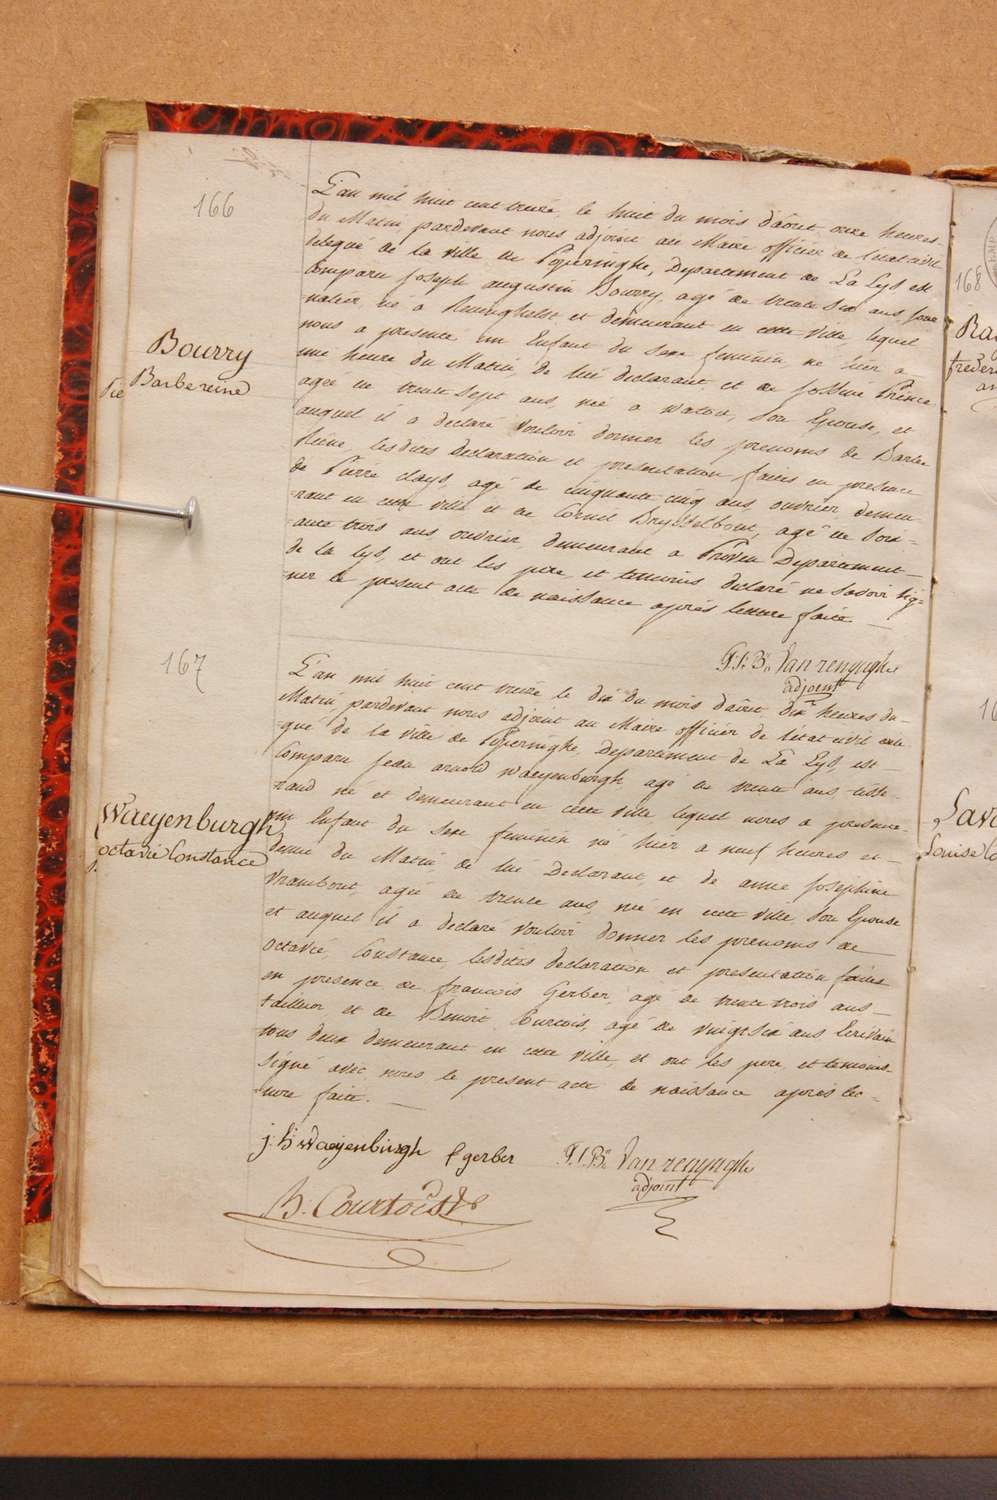 166
Bourry
Barbe reine
L'an mil huit cent treize, le huit du mois d'août onze heures
du Matin, pardevant nous adjoint au Maire officier de l'etat civil
delegué de la ville de Poperinghe, Departement de La Lys est
Comparu Joseph augustin Bourry, agé de trente six ans jour
nalier, né a Reninghelst et demeurant en cette ville, lequel
nous a presenté un Enfant du sexe feminin né hier a
une heure du Matin, de lui declarant et de Prince
agée de trente sept ans née a watou, son Epouse, et
auquel il a declaré vouloir donner les prenoms de Barbe
Reine, lesdites declaration et presentation faites en presence
de Pierre Clays, agé de cinquante cinq ans ouvrier demeu
rant en cette ville et de Cornil agé de
ante trois ans ouvrier, demeurant a Proven Departement
de la Lys, et ont les pere, et temoins declaré ne savoir sig-
ner le present acte de naissance après lecture faite
P.J.B. Van renynghe
adjoint
167
Waeyenburgh
octavie Constance
L'an mil huit cent treize le dix du mois d'août dix heures du
Matin, pardevant nous adjoint au Maire officier de l'etat civil dele
gué de la ville de Poperinghe, Departement de La Lys, est
Comparu Jean arnold Waeyenburgh agé de trente ans tisse-
rand né et demeurant en cette ville lequel nous a presenté
un Enfant du sexe feminin né hier a neuf heures et
demie du Matin, de lui Declarant, et de anne Josephine
Vrambout, agée de trente ans, née en cette ville son Epouse
et auquel il a declaré vouloir donner les prenoms de
octavie, Constance, lesdites declaration et presentation faites
en presence de francois Gerber, agé de trente trois ans
tailleur, et de Benoit Courtois, agé de vingt six ans Ecrivain
tous deux demeurant en cette ville, et ont les pere, et temoins
signé avec nous le present acte de naissance après lec-
ture faite.
Waeyenburgh f gerber P.J.B. Van renynghe
adjoint
B. Courtois
168